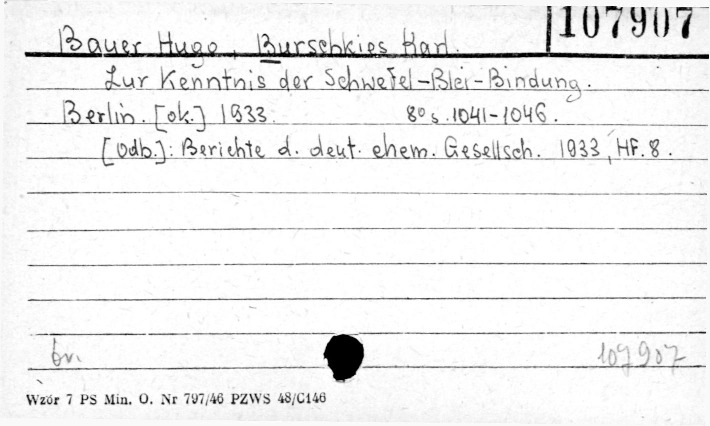 107907
Bauer Hugo, Burschkies Karl.
Zur Kenntnis der Schwefel-Blei-Bindung.
Berlin. [ok.] 1933. 8° s. 1041-1046.
[Odb.]: Berichte d. deut. chem. Gesellsch. 1933, HF. 8.
br. 107907
Wzór 7 PS Min. O. Nr 797/46 PZWS 48/C146